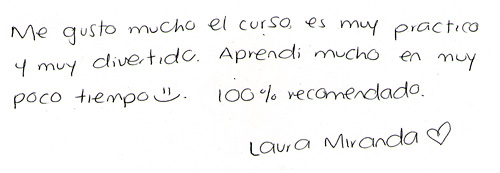 Me gusto mucho el curso, es muy practico
y muy divertido. Aprendi mucho en muy
poco tiempo :). 100% recomendado.
Laura Miranda ♡